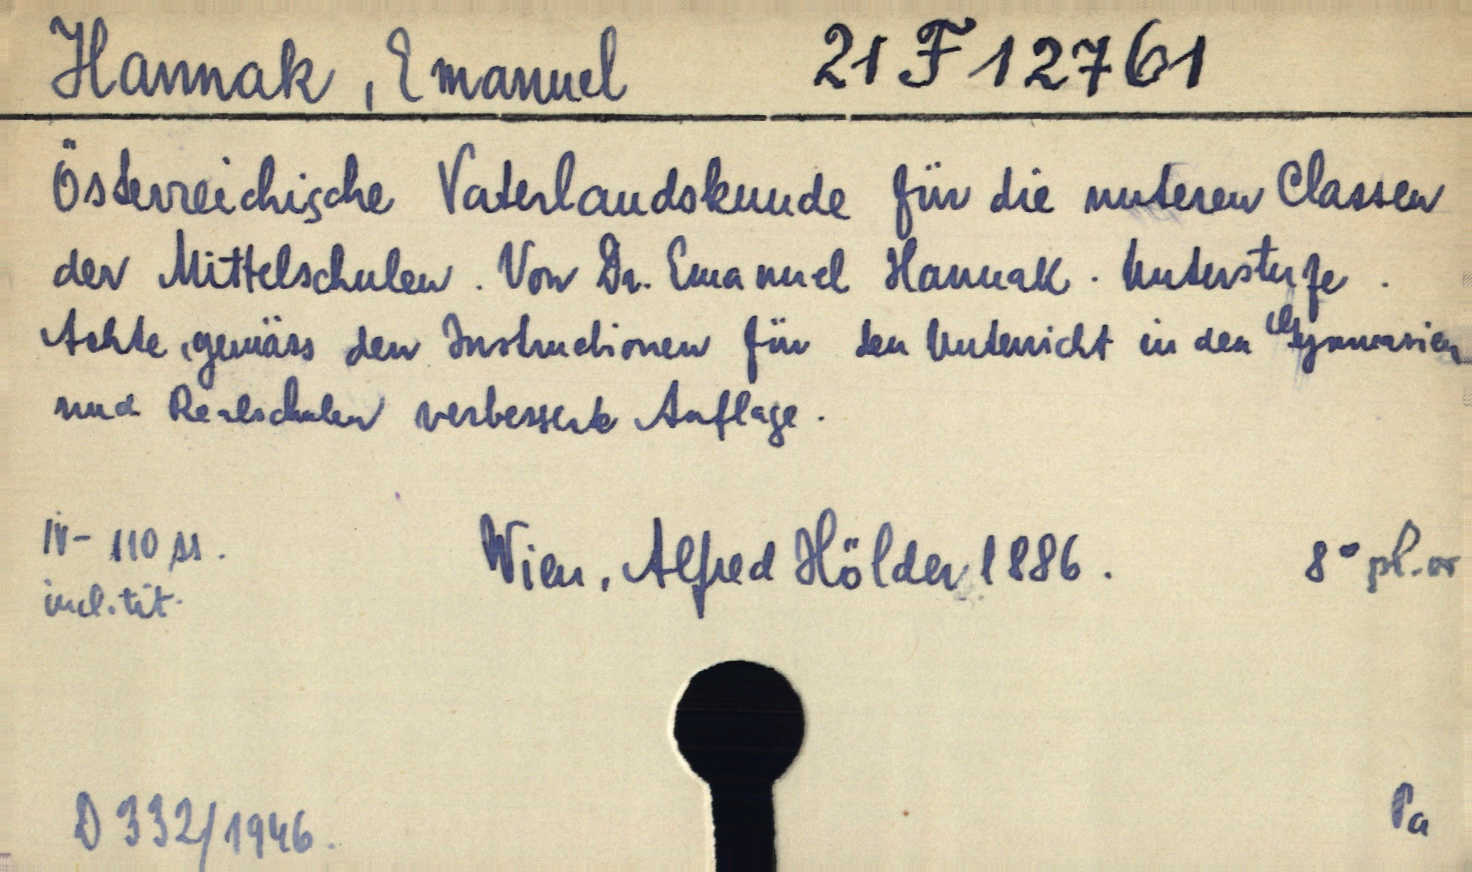 Hannak, Emanuel 21 F 12761
Österreichische Vaterlandskunde für die unteren Classen
der Mittelschulen. Von Dr. Emanuel Hannak. Unterstufe.
Achte, gemäss den Instructionen für den Unterricht in den Gymnasien
und Realschulen verbesserte Auflage.
IV-110 ss. Wien, Alfred Hölder, 1886. 8°
incl. tit.
D 332/1946. Pa